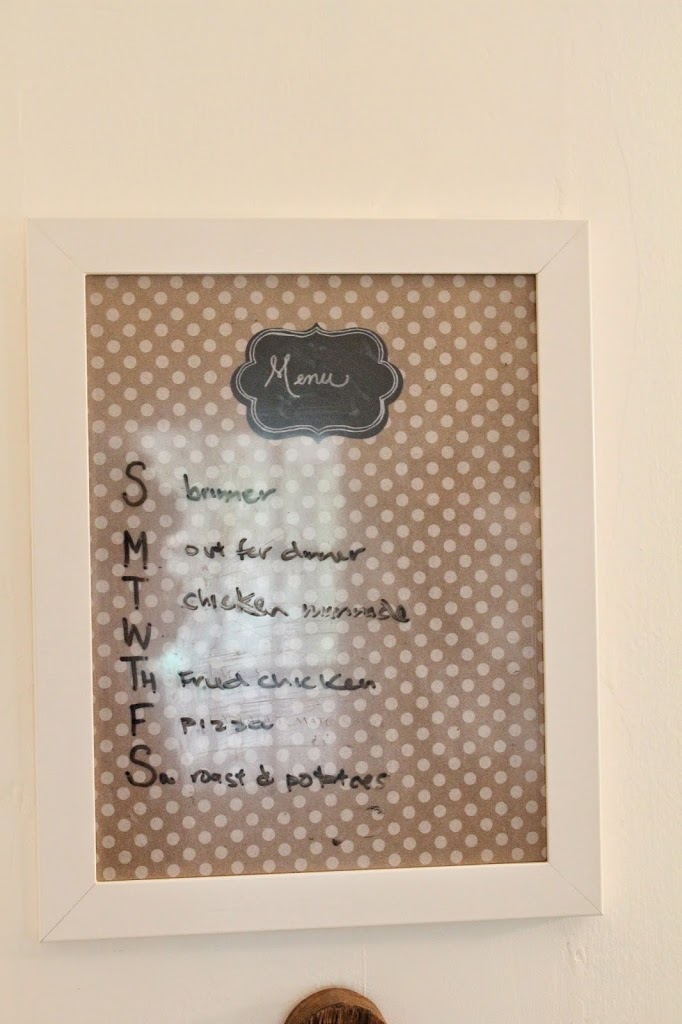 Menu
S brinner
M out for dinner
T chicken marinade
W
TH Fried chicken
F pizza
Sa roast & potatoes